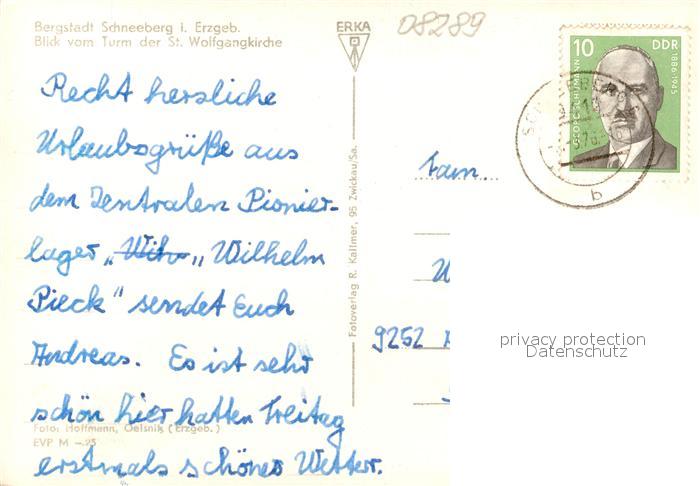 Bergstadt Schneeberg i. Erzgeb.
Blick vom Turm der St. Wolfgangkirche
ERKA
08289
10 DDR
GEORG SCHUMANN
1886-1945
Recht hersliche
Urlaubsgrüße aus
dem Zentralen Pionier-
lager „ „Wilhelm
Pieck" sendet Euch
Andreas. Es ist sehr
schön hier hatten Freitag
erstmals schönes Wetter.
Foto: Hoffmann, Oelsnitz (Erzgeb.)
EVP M -.25
Fotoverlag R. Kallmer, 95 Zwickau/Sa.
Fam.
9252
b
privacy protection
Datenschutz